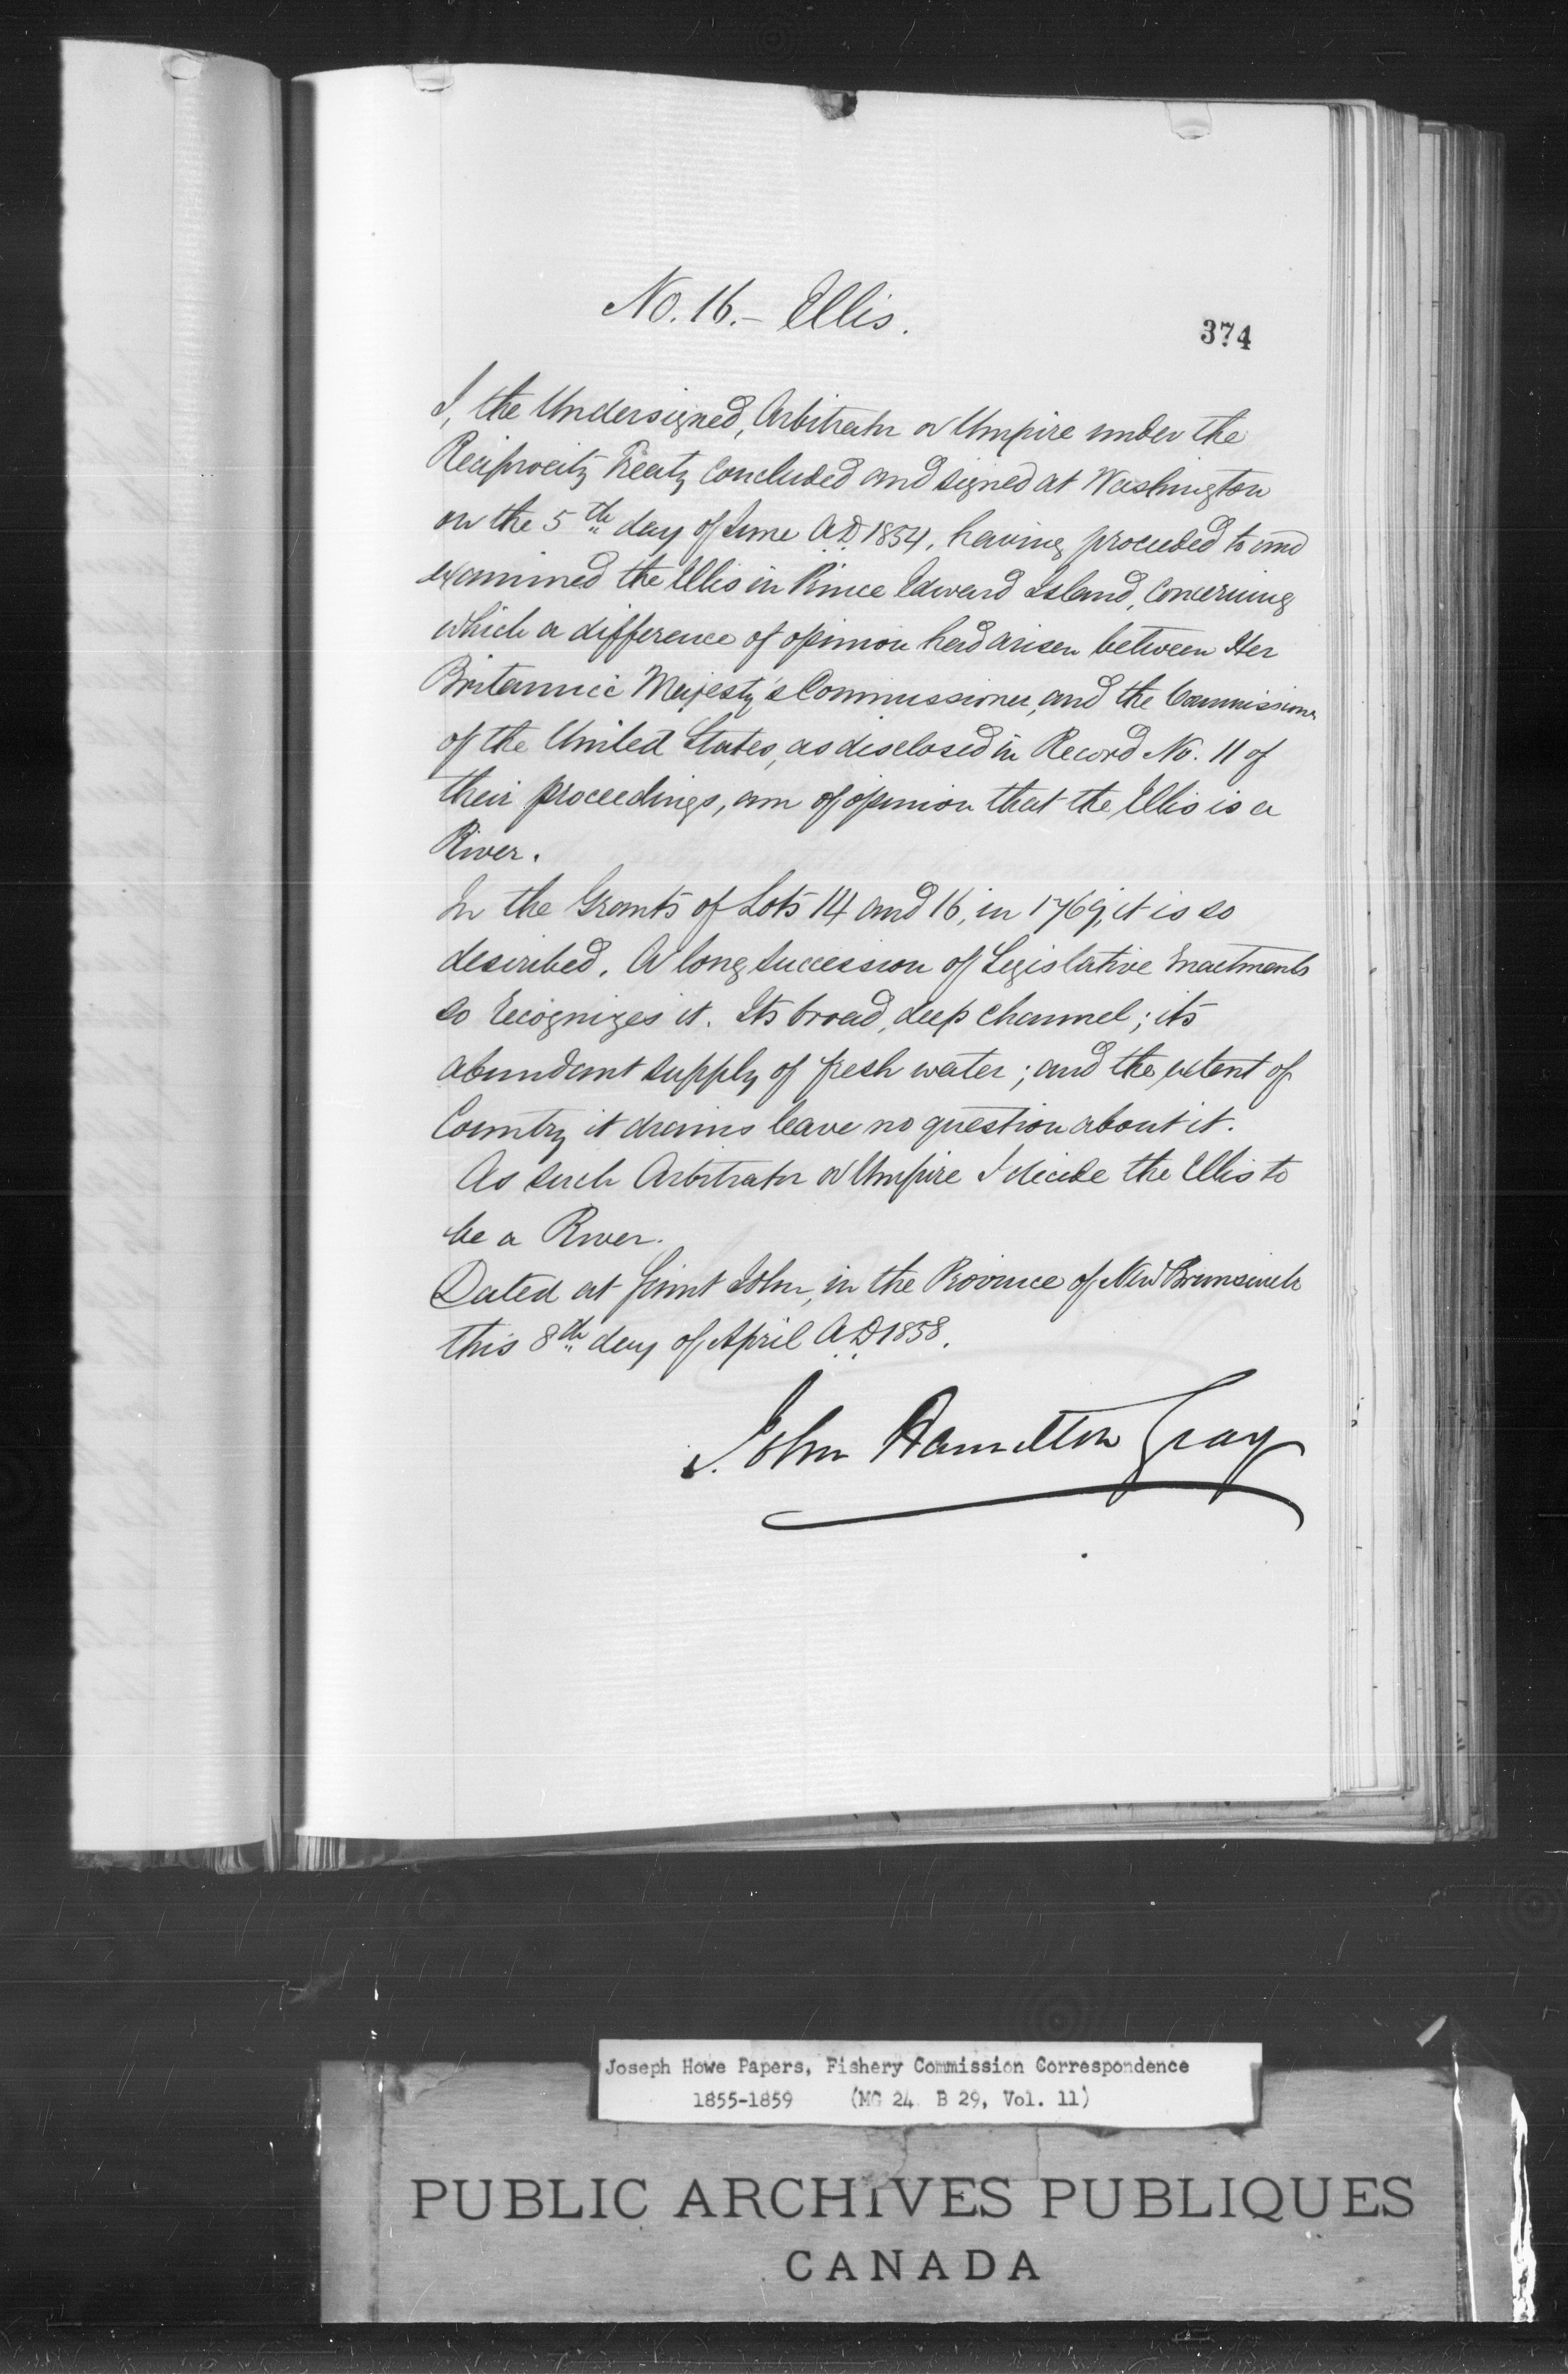 No. 16.- Ellis.
374
I, the Undersigned, Arbitrator or Umpire under the
Reciprocity Treaty Concluded and signed at Washington
on the 5th day of June A.D. 1854, having proceeded to and
examined the Ellis in Prince Edward Island, Concerning
which a difference of opinion had arisen between Her
Britannic Majesty's Commissioner, and the Commissioner
of the United States, as disclosed in Record No. 11 of
their proceedings, am of opinion that the Ellis is a
River.
In the Grants of Lots 14 and 16, in 1769, it is so
described. A long succession of Legislative Enactments
so recognizes it. Its broad, deep channel; its
abundant supply of fresh water; and the extent of
Country it drains leave no question about it.
As such Arbitrator or Umpire I decide the Ellis to
be a River.
Dated at Saint John, in the Province of New Brunswick
this 8th day of April A.D. 1858.
John Hamilton Gray
Joseph Howe Papers, Fishery Commission Correspondence
1855-1859 (MG 24 B 29, Vol. 11)
PUBLIC ARCHIVES PUBLIQUES
CANADA